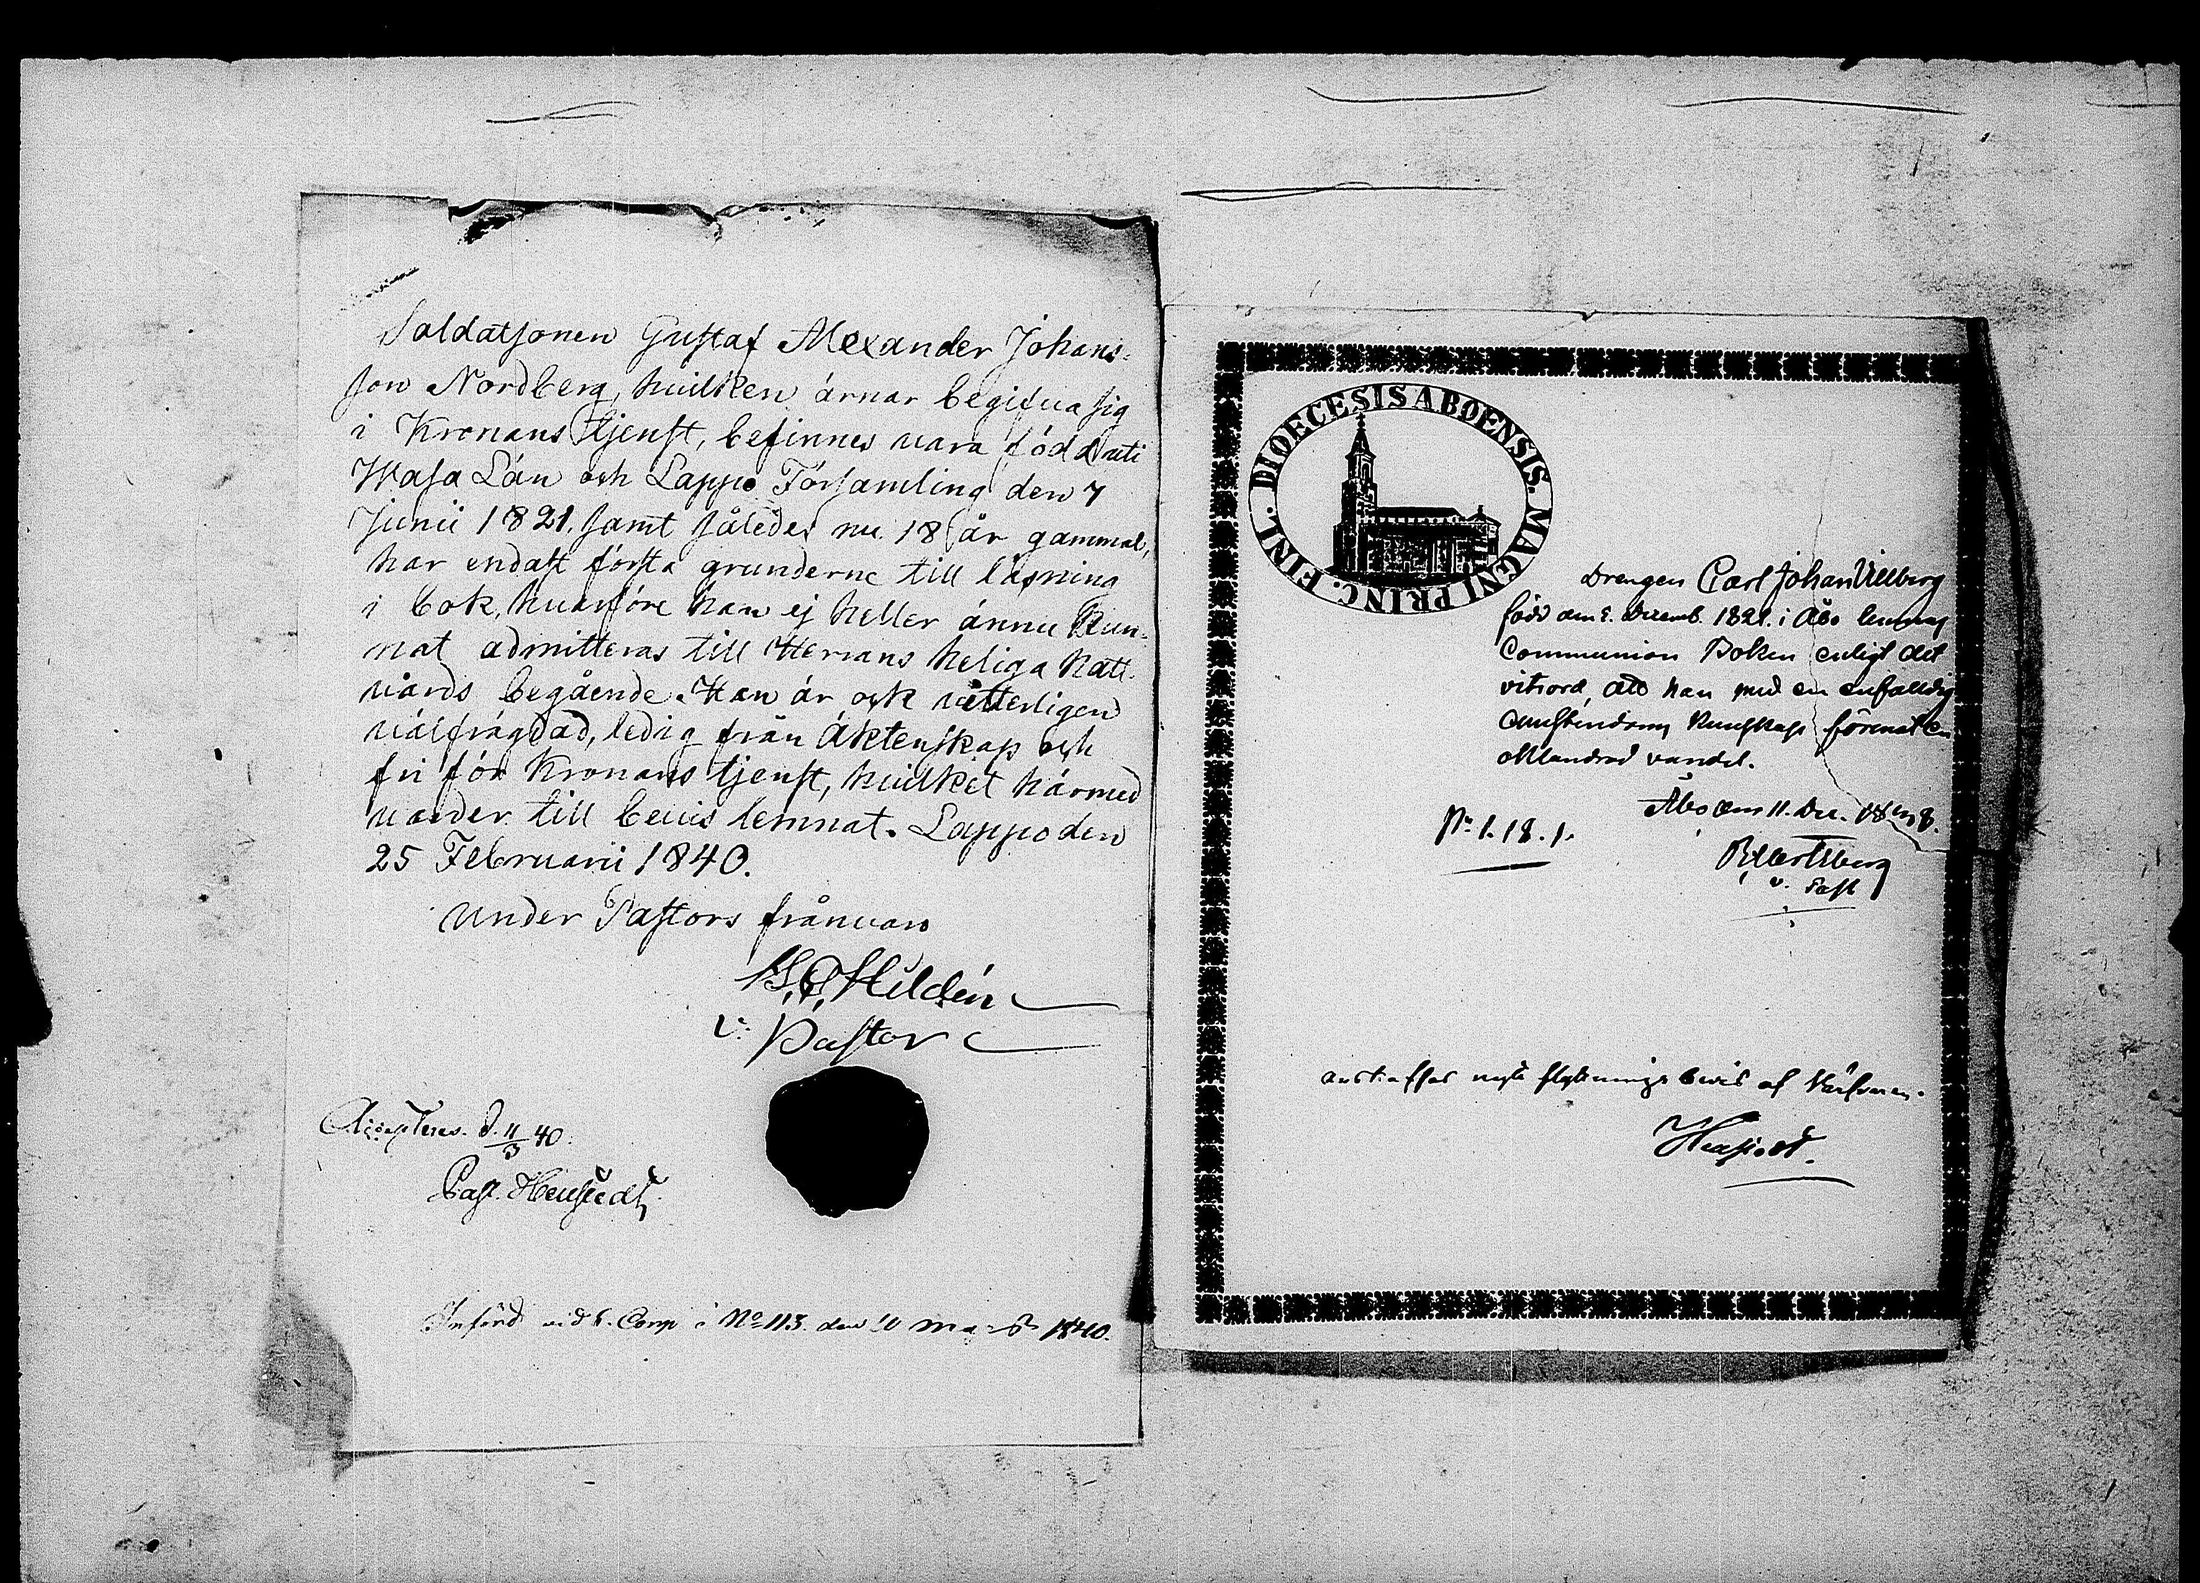 Soldatsonen Gustaf Alexander Johans-
son Nordberg, hvilken ärnar begifva sig
i Kronans tjenst, befinnes vara född uti
Wasa Län och Lappo Församling den 7
Junii 1821. samt således nu 18 år gammal,
har endast första grunderne till läsning
i bok, hvarföre han ej heller ännu kun-
nat admitteras till Herrans heliga Natt-
vards begående. Han är ock vetterligen
välfrägdad, ledig från Äktenskap och
fri för Kronans tjenst, hvilket härmed
varder till bevis lemnat. Lappo den
25 Februarii 1840.
Under Pastors frånvaro
Hildén
v. Pastor
Accepteras. d. 11/3 40.
Past.
Införd vid 6. Comp i No 113. den 10 mars 1840.
DIOECESIS ABOENSIS. MAGNI PRINC. FINL.
Drengen Carl Johan Villberg
född den Decemb. 1821. i Åbo
Communion Boken enligt det
vitsord, att han med en enfalldig
Kunskap förenat en
oklandrad vandel.
Åbo den 11. Dec.
No 1. 18. 1.
v. Past
anskaffas nytt flyttnings bevis af Värfvaren.